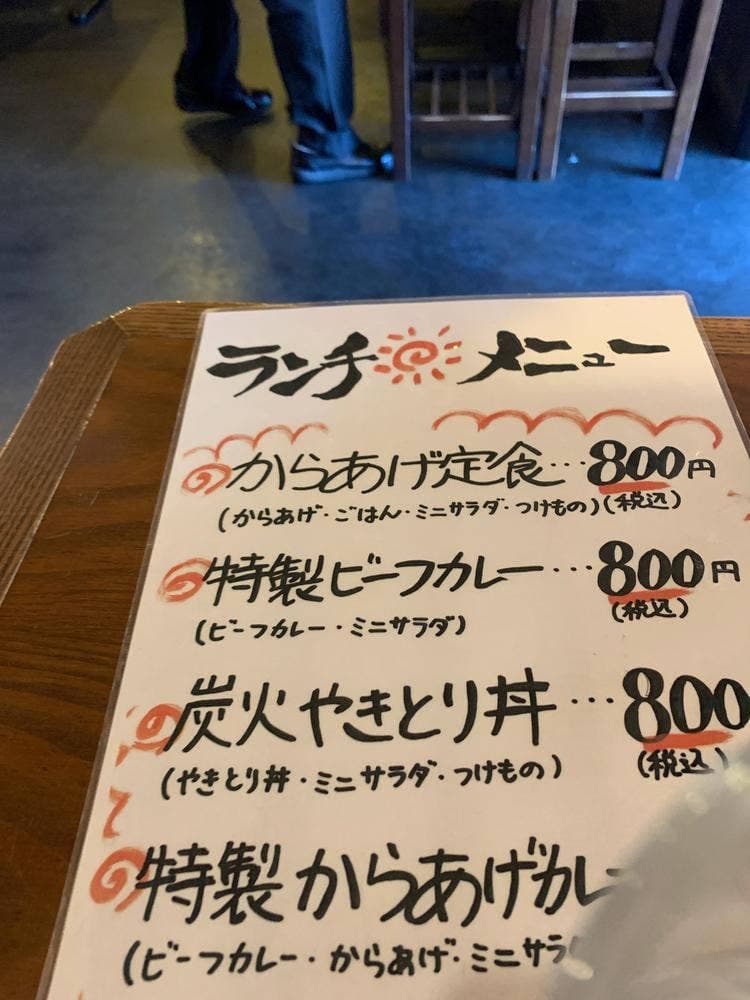 ランチ メニュー
からあげ定食…800円
(からあげ・ごはん・ミニサラダ・つけもの)(税込)
特製ビーフカレー…800円
(ビーフカレー・ミニサラダ) (税込)
炭火やきとり丼…800
(やきとり丼・ミニサラダ・つけもの) (税込)
特製からあげカレ
(ビーフカレー・からあげ・ミニサラ